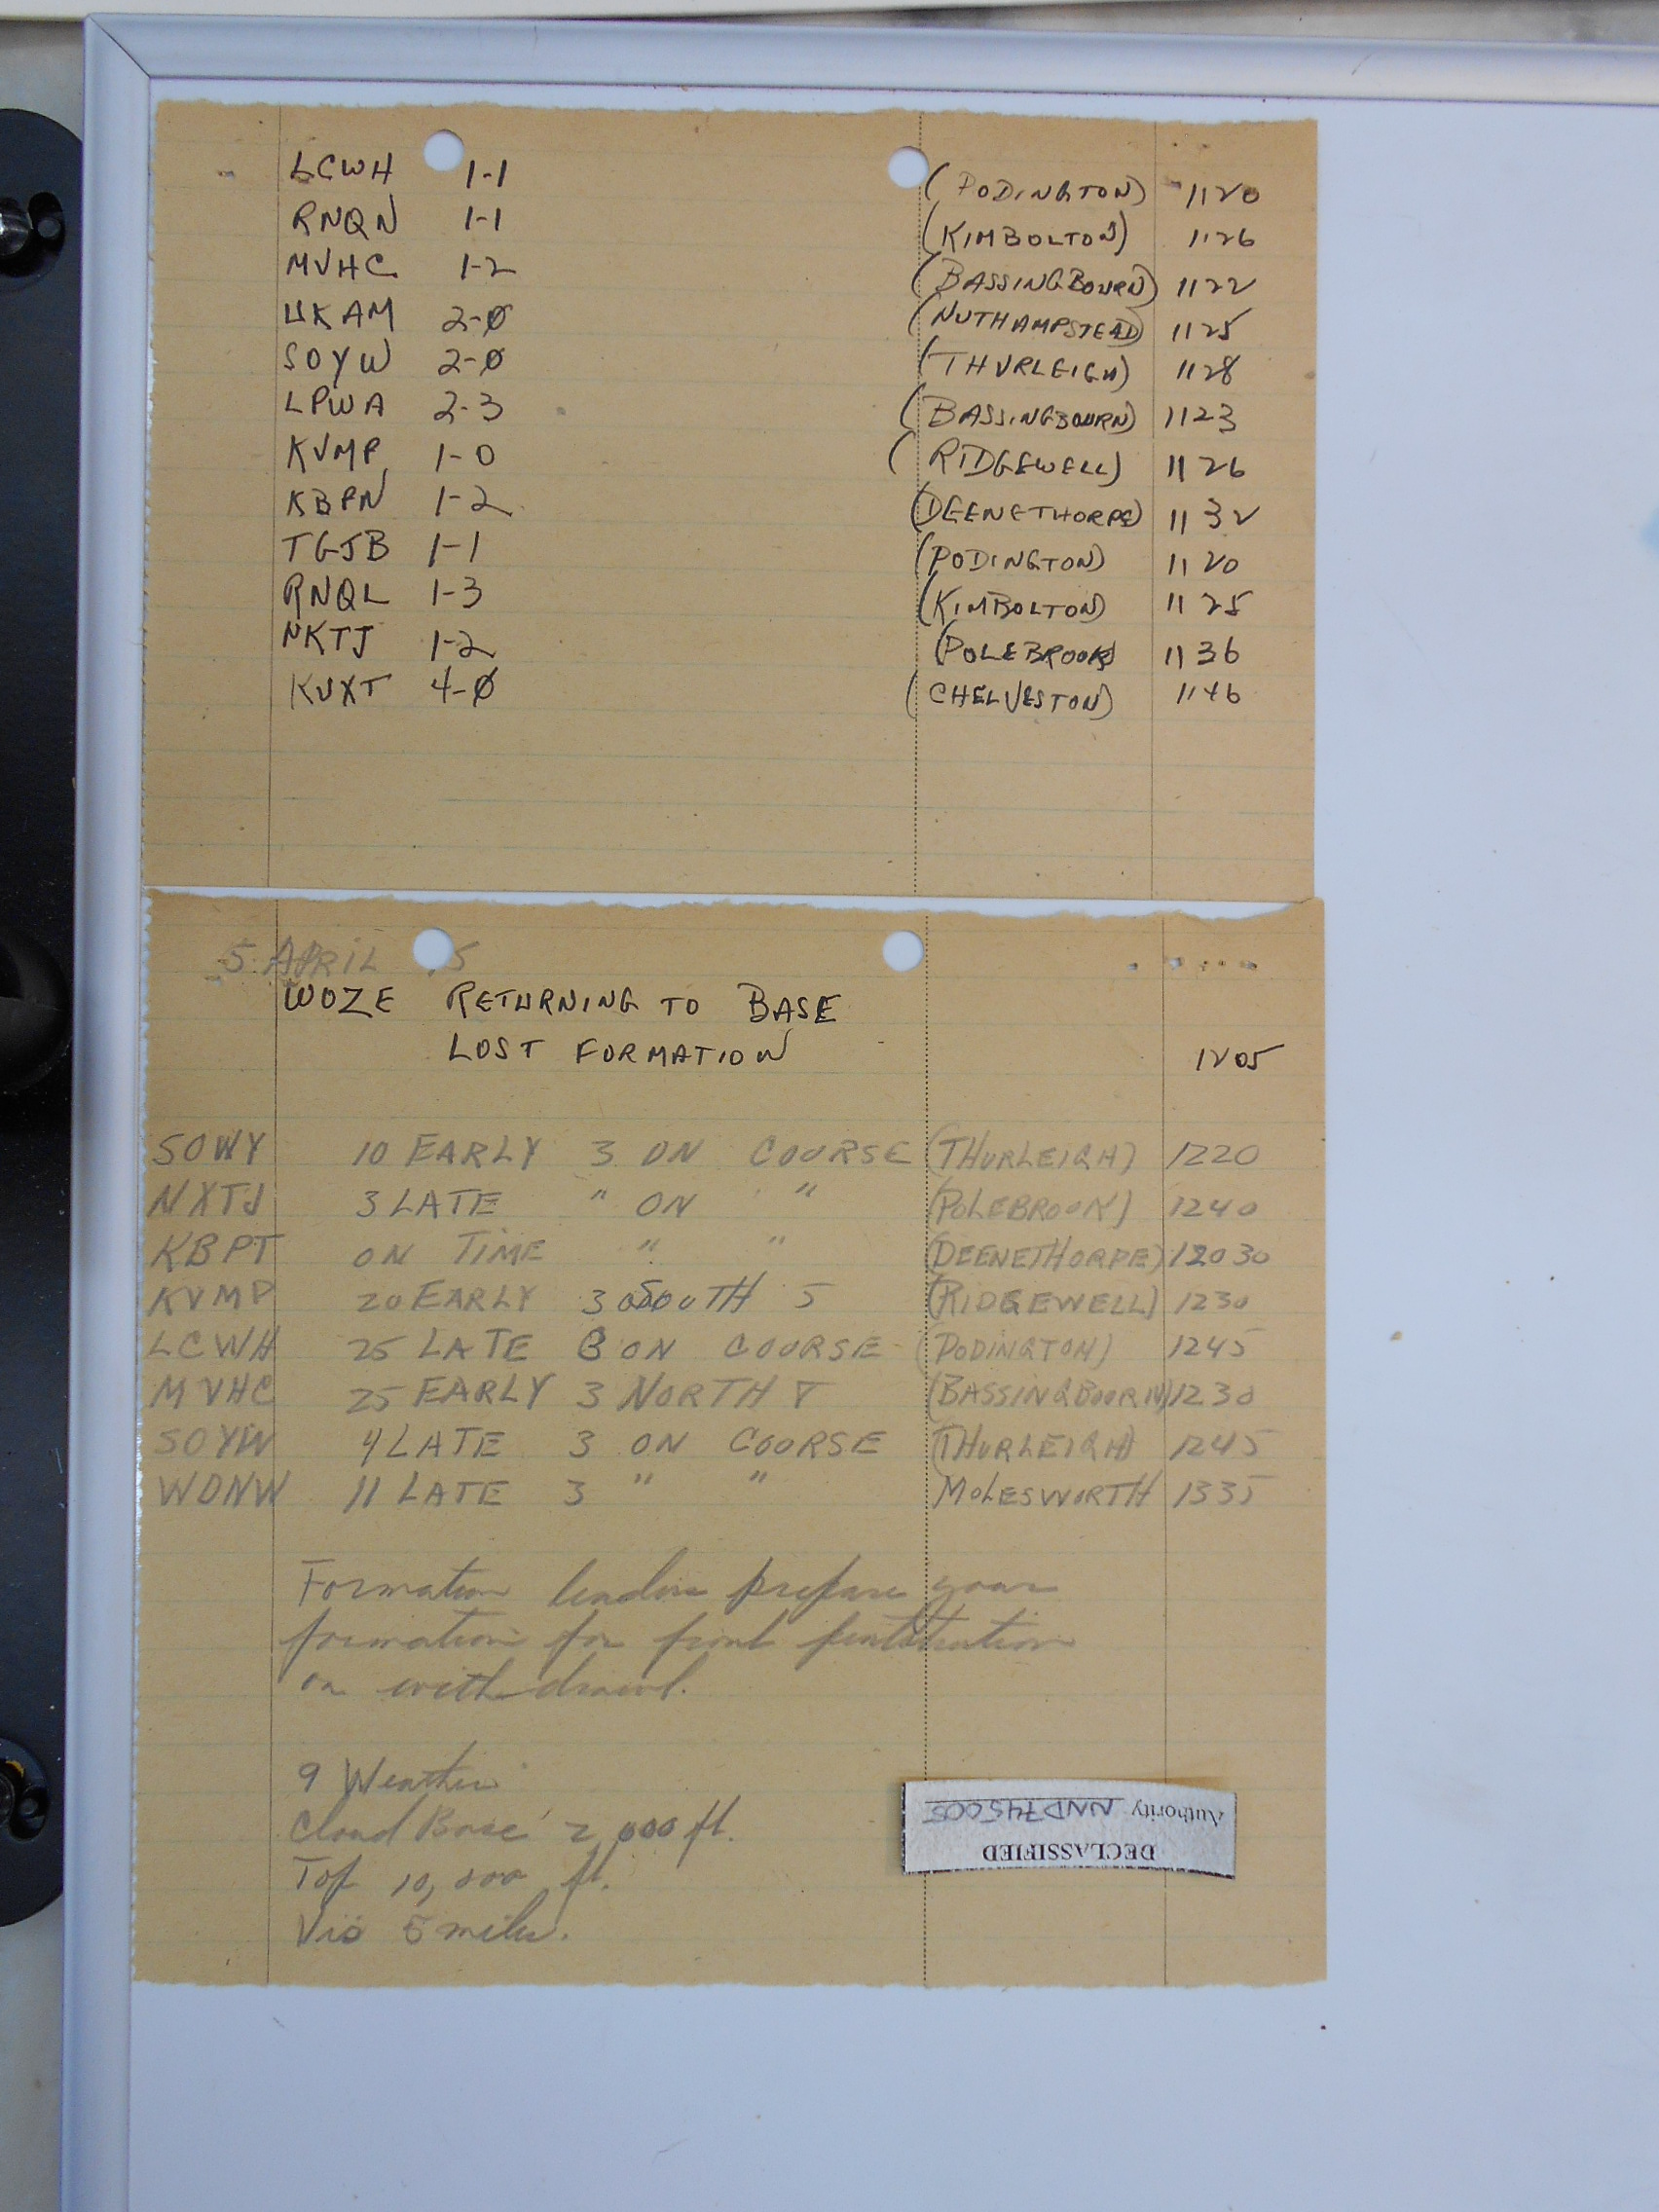 LCWH 1-1 (PODINGTON) 1120
RNQN 1-1 (KIMBOLTON) 1126
MVHC 1-2 (BASSINGBOURN) 1122
UKAM 2-0 (NUTHAMPSTEAD) 1125
SOYW 2-0 (THURLEIGH) 1128
LPWA 2-3 (BASSINGBOURN) 1123
KVMP 1-0 (RIDGEWELL) 1126
KBPN 1-2 (DEENETHORPE) 1132
TGJB 1-1 (PODINGTON) 1120
RNQL 1-3 (KIMBOLTON) 1125
NKTJ 1-2 (POLEBROOK) 1136
KVXT 4-0 (CHELVESTON) 1146
5 APRIL 5
WOZE RETURNING TO BASE
LOST FORMATION 1205
SOWY 10 EARLY 3 ON COURSE (THURLEIGH) 1220
NXTJ 3 LATE " ON " (POLEBROOK) 1240
KBPT ON TIME " " (DEENETHORPE) 12030
KVMP 20 EARLY 3 SOUTH 5 (RIDGEWELL) 1230
LCWH 25 LATE 3 ON COURSE (PODINGTON) 1245
MVHC 25 EARLY 3 NORTH 8 (BASSINGBOURN) 1230
SOYW 4 LATE 3 ON COURSE (THURLEIGH) 1245
WDNW 11 LATE 3 " " MOLESWORTH 1335
Formation leaders prepare your
formation for front
on withdrawl.
9 Weather
Cloud Base 2,000 ft.
Top 10,000 ft.
Vis 5 miles.
DECLASSIFIED
Authority NND745005